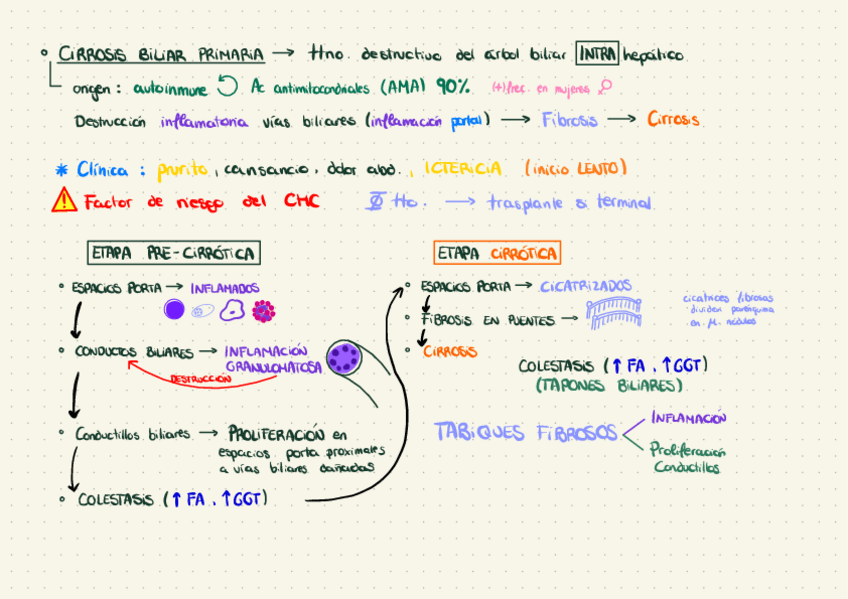 CIRROSIS BILIAR PRIMARIA → Tno. destructivo del árbol biliar INTRA hepático
origen: autoinmune Ac antimitocondriales (AMA) 90% (+) frec. en mujeres ♀
Destrucción inflamatoria vías biliares (inflamación portal) → Fibrosis → Cirrosis
* Clínica: prurito, cansancio, dolor abd., ICTERICIA (inicio LENTO)
Factor de riesgo del CHC Tto. → trasplante si terminal.
ETAPA PRE-CIRRÓTICA
ESPACIOS PORTA → INFLAMADOS
CONDUCTOS BILIARES → INFLAMACIÓN
GRANULOMATOSA
DESTRUCCIÓN
Conductillos biliares → PROLIFERACIÓN en
espacios porta proximales
a vías biliares dañadas
COLESTASIS (↑ FA, ↑ GGT)
ETAPA CIRRÓTICA
ESPACIOS PORTA → CICATRIZADOS
FIBROSIS EN PUENTES →
cicatrices fibrosas
dividen parénquima
en nódulos
CIRROSIS
COLESTASIS (↑ FA, ↑ GGT)
(TAPONES BILIARES)
TABIQUES FIBROSOS
INFLAMACIÓN
Proliferación
Conductillos